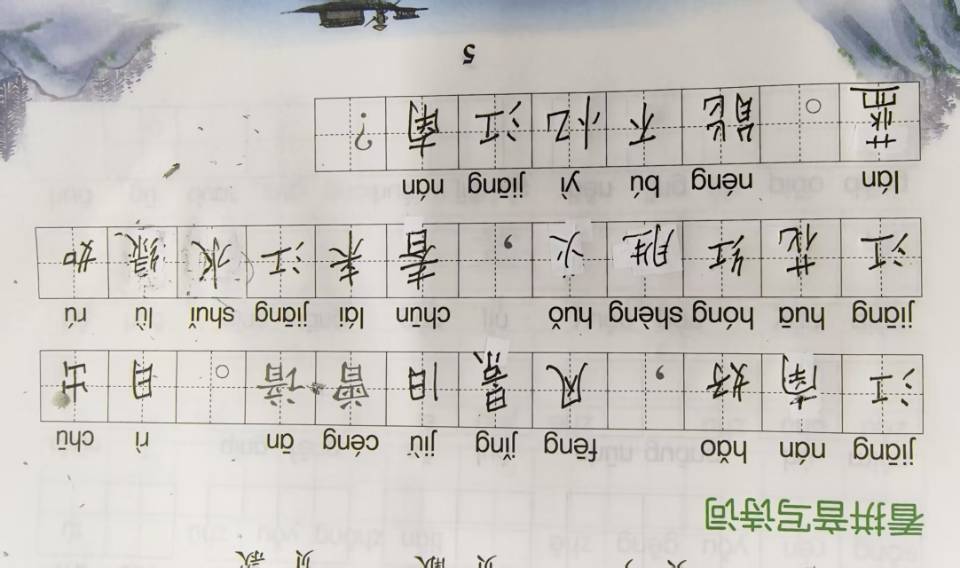 看拼音写诗词
jiāng nán hǎo fēng jǐng jiù céng ān rì chū
江南好，风景旧曾谙。日出
jiāng huā hóng shèng huǒ chūn lái jiāng shuǐ lǜ rú
江花红胜火，春来江水绿如
lán néng bú yì jiāng nán
蓝。能不忆江南？
5